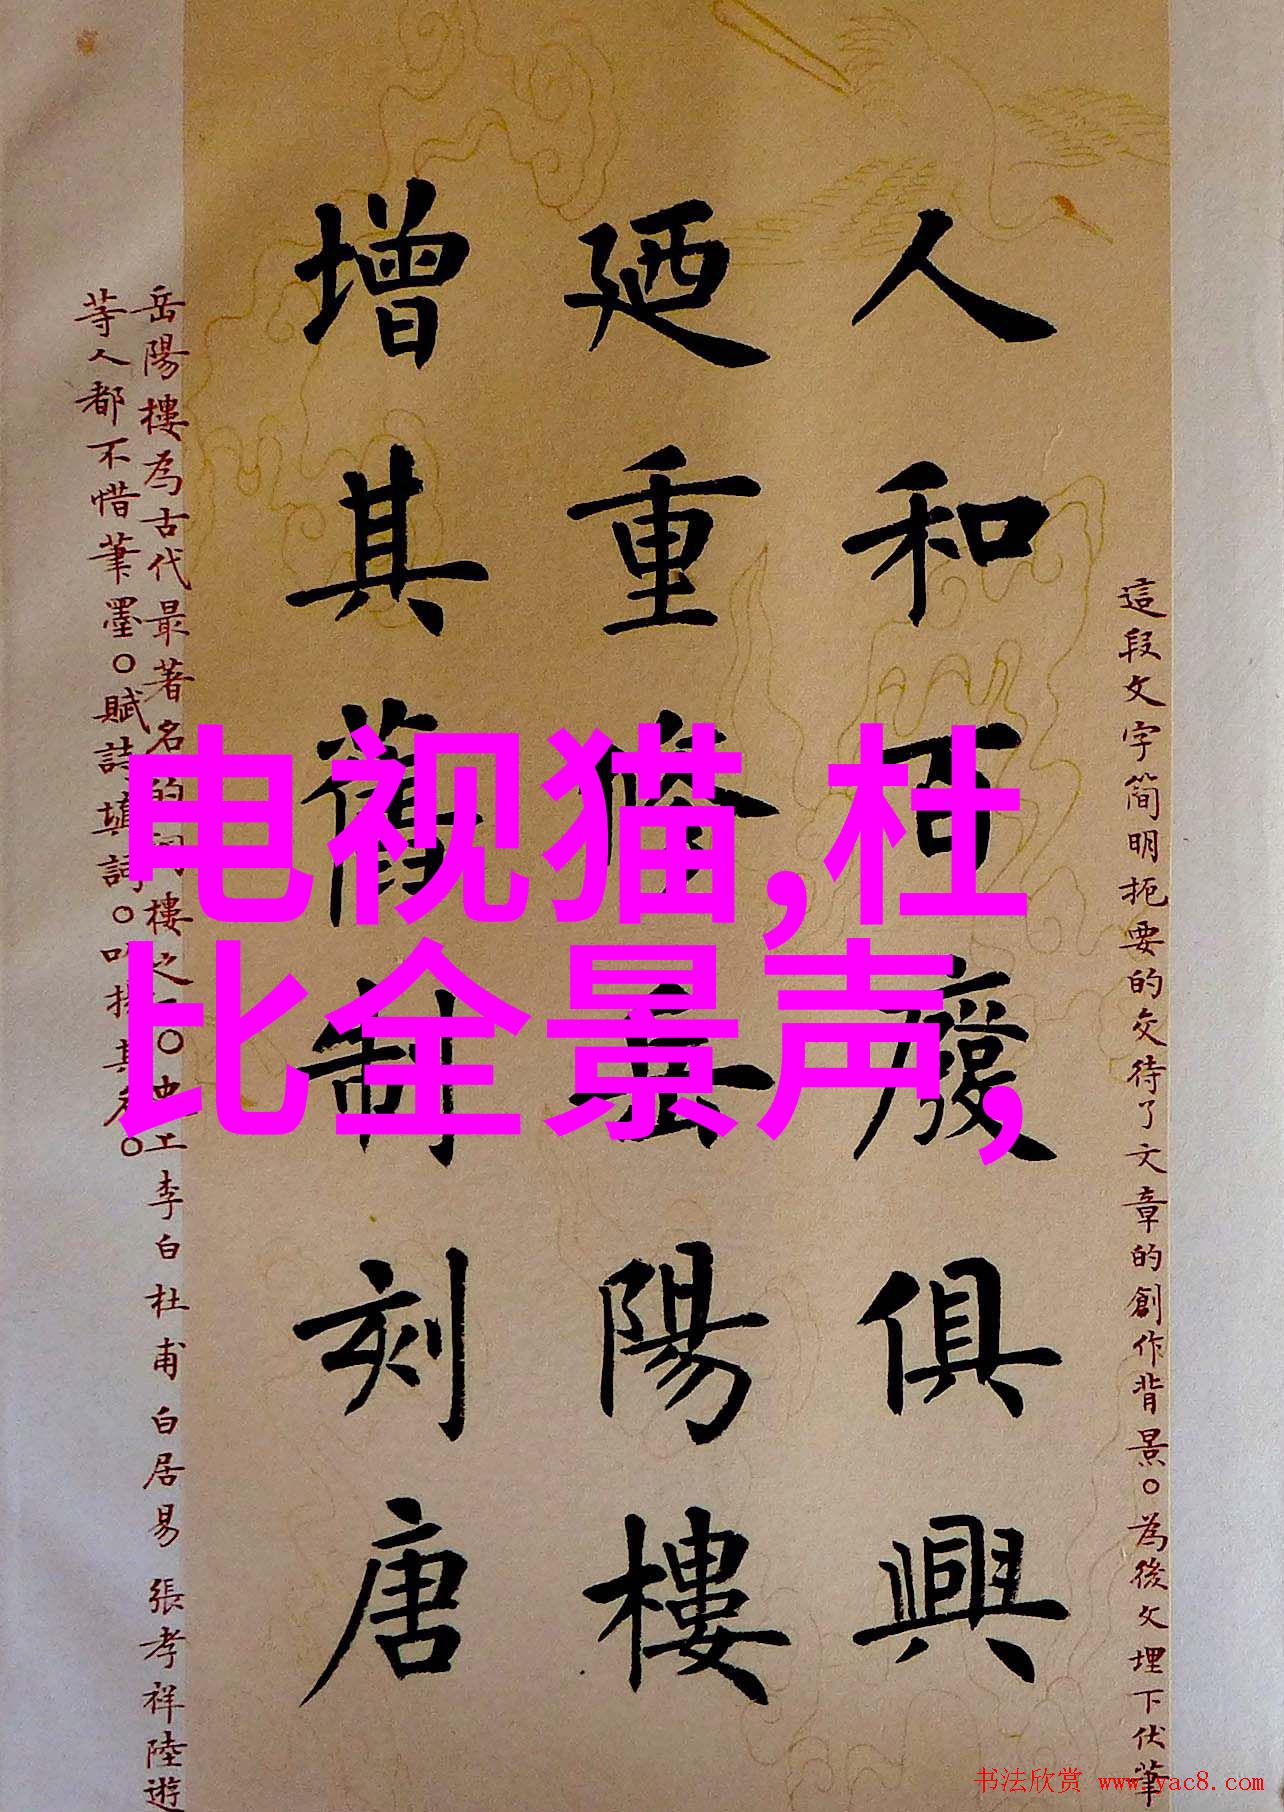 這段文字简明扼要的交待了文章的創作背景。為後文埋下伏筆
人和百廢俱興
廼重修岳陽樓
增其舊制刻唐
岳陽樓為古代最著名的樓之一。李白 杜甫 白居易 張孝祥 陸遊
等人都不惜筆墨。賦詩填詞。其名。
电视猫,杜
比全景声,
书法欣赏 www.yac8.com